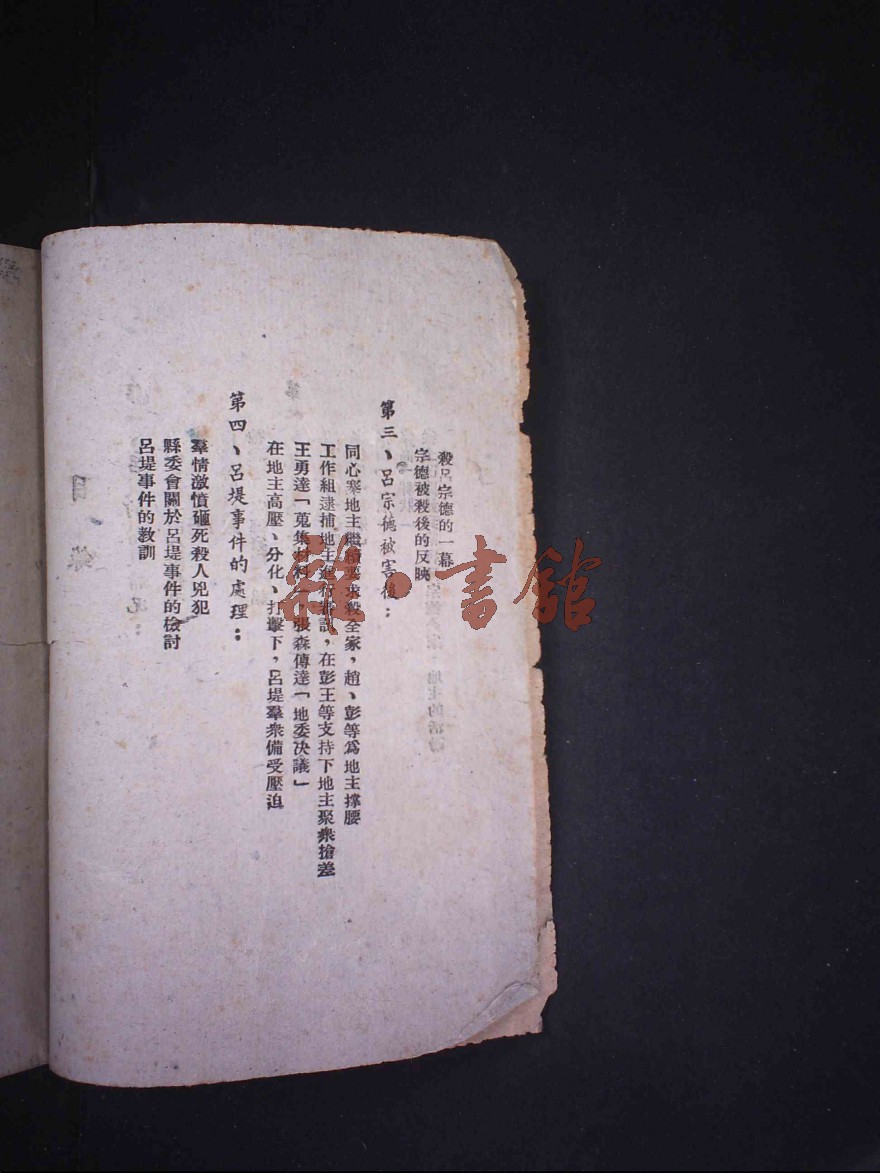 殺呂宗德的一幕
宗德被殺後的反映
第三、呂宗德被害後：
同心寨地主繼續要求殺全家，趙、彭等爲地主撑腰
工作組逮捕地主進行審訊，在彭王等支持下地主聚衆搶差
王勇達「蒐集材料」張森傳達「地委决議」
在地主高壓、分化、打擊下，呂堤羣衆備受壓迫
第四、呂堤事件的處理：
羣情激憤砸死殺人兇犯
縣委會關於呂堤事件的檢討
呂堤事件的教訓
雜·書館